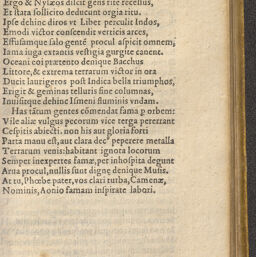 Ergo & Nylæos discit gens rite recessus,
Et stata sollicito deducunt orgia ritu.
Ipse dehinc diros vt Liber perculit Indos,
Emodi victor conscendit verticis arces,
Effusamque salo gentē procul aspicit omnem,
Iamq; iuga extantis vestigia gurgite canent.
Oceani coi prætento denique Bacchus
Littore, & extrema terrarum victor in ora
Ducit laurigeros post Indica bella triumphos,
Erigit & geminas telluris fine columnas,
Inuisitque dehinc Ismeni fluminis vndam.
Has tātum gentes cōmendat fama p orbem:
Vile aliæ vulgus pecorum vice terga pererrant
Cespitis abiecti. non his aut gloria forti
Parta manu est, aut clara decꝰ peperere metalla
Terrarum venis: habitant ignota locorum
Semper inexpertes famæ, per inhospita degunt
Arua procul, nullis sunt digne denique Musis.
At tu, Phœbe pater, vos clari turba, Camenæ,
Nominis, Aonio famam inspirate labori.